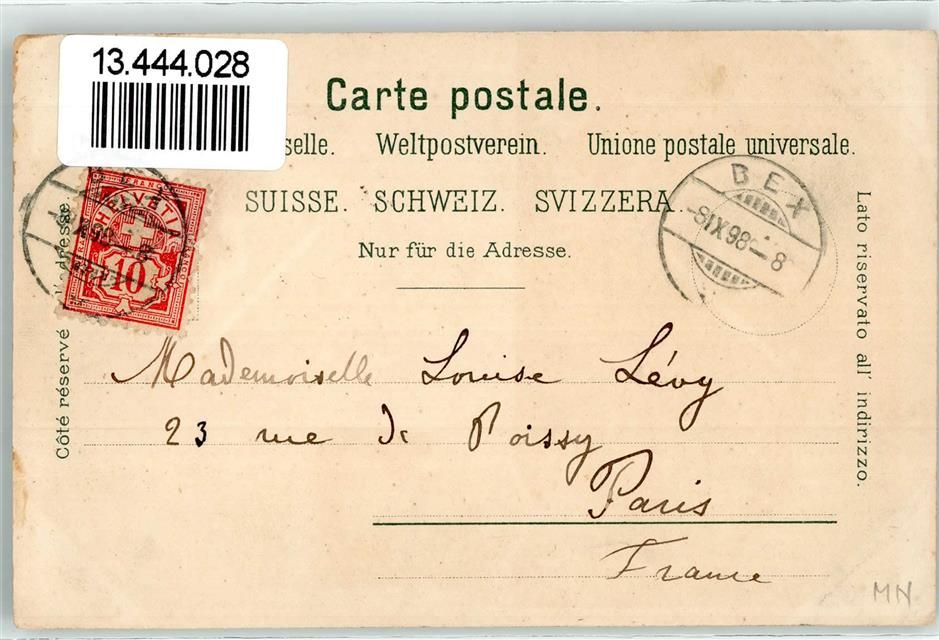 13.444.028
Carte postale.
selle. Weltpostverein. Unione postale universale.
SUISSE. SCHWEIZ. SVIZZERA.
Nur für die Adresse.
BEX
8 IX 98 - 8
FRANCO
HELVETIA
10
Côté réservé à l'adresse.
Lato riservato all' indirizzo.
Mademoiselle Louise Lévy
23 rue de Poissy
Paris
France
MN